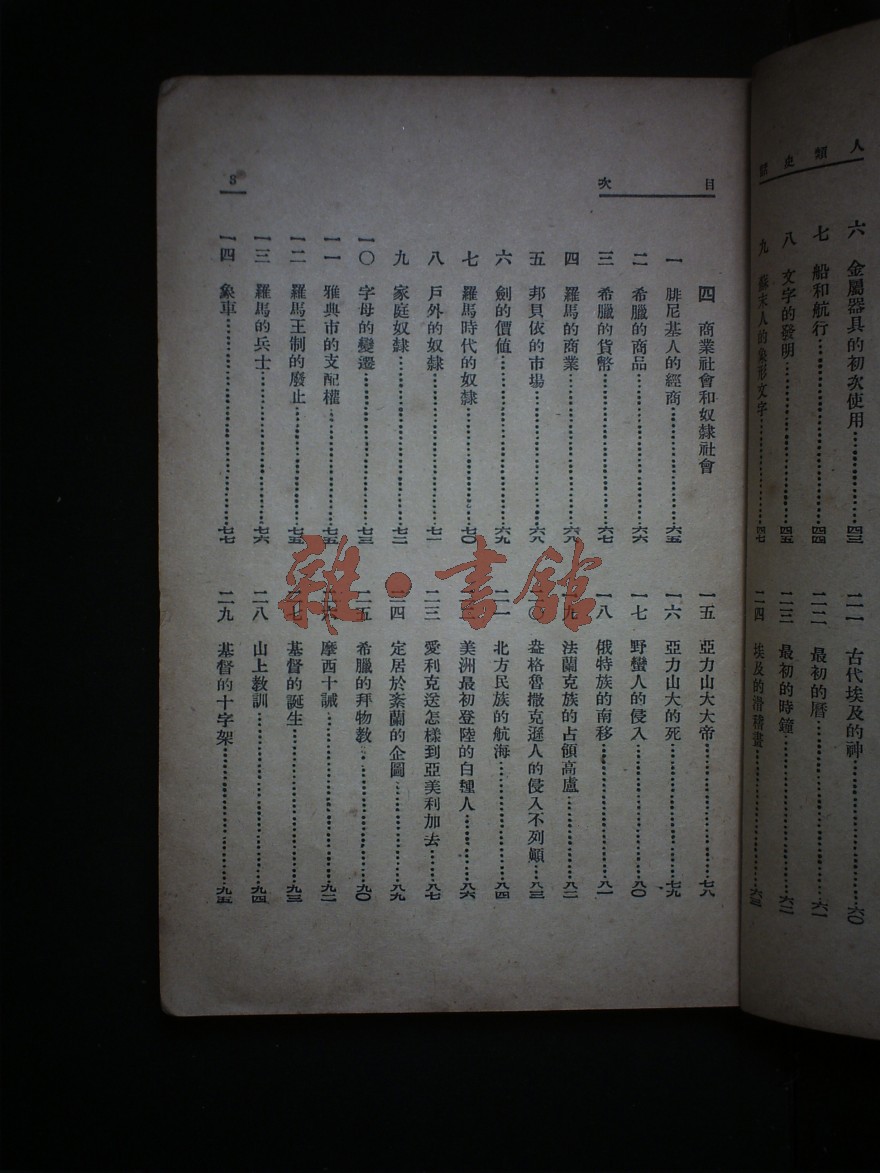 人類史話
六 金屬器具的初次使用 四三
七 船和航行 四四
八 文字的發明 四五
九 蘇末人的象形文字 四七
二一 古代埃及的神 六〇
二二 最初的曆 六一
二三 最初的時鐘 六二
二四 埃及的滑稽畫 六三
目次
3
四 商業社會和奴隸社會
一 腓尼基人的經商 六五
二 希臘的商品 六六
三 希臘的貨幣 六七
四 羅馬的商業 六八
五 邦貝依的市場 六八
六 劍的價值 六九
七 羅馬時代的奴隸 七〇
八 戶外的奴隸 七一
九 家庭奴隸 七二
一〇 字母的變遷 七三
一一 雅典市的支配權 七五
一二 羅馬王制的廢止 七五
一三 羅馬的兵士 七六
一四 象車 七七
一五 亞力山大大帝 七八
一六 亞力山大的死 七九
一七 野蠻人的侵入 八〇
一八 俄特族的南移 八一
一九 法蘭克族的占領高盧 八二
二〇 盎格魯撒克遜人的侵入不列顛 八三
二一 北方民族的航海 八四
二二 美洲最初登陸的白種人 八六
二三 愛利克送怎樣到亞美利加去 八七
二四 定居於紊蘭的企圖 八九
二五 希臘的拜物教 九〇
二六 摩西十誡 九二
二七 基督的誕生 九三
二八 山上教訓 九四
二九 基督的十字架 九五
雜·書館